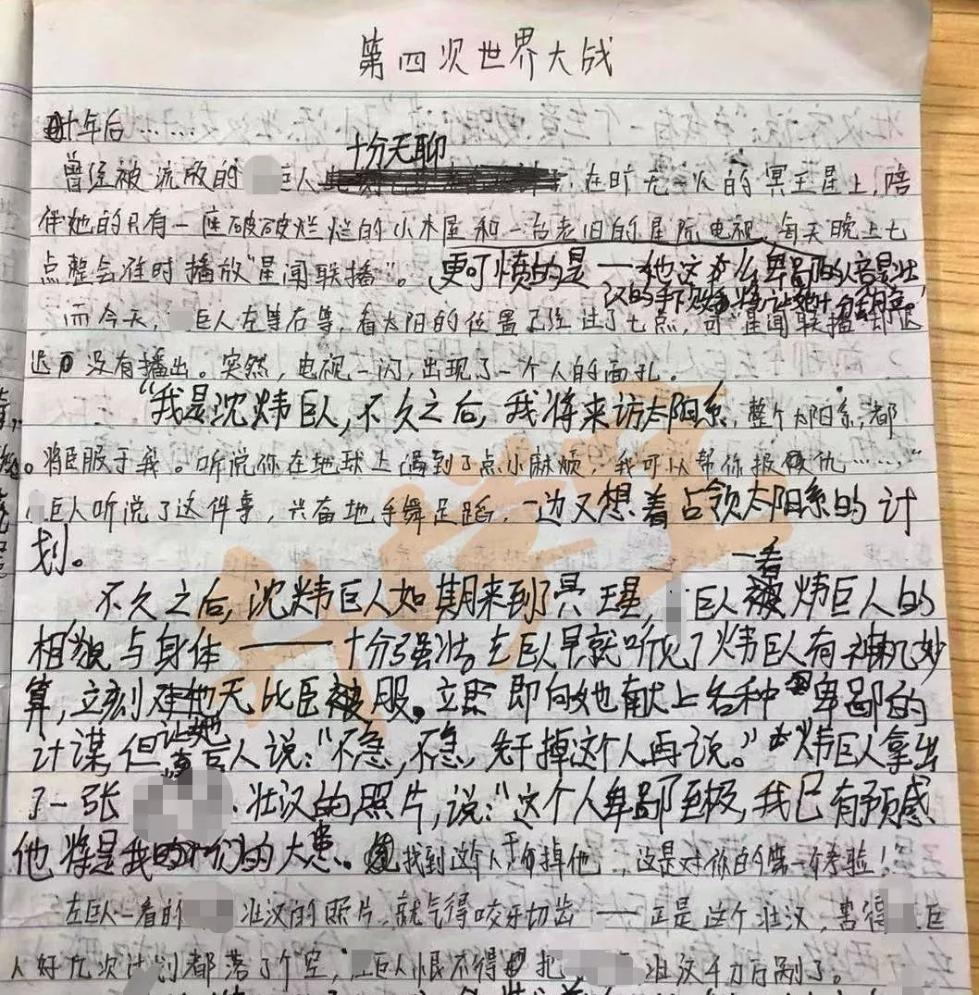 第四次世界大战
十年后……
十分无聊
曾经被流放的巨人,在旷无一人的冥王星上,陪
伴她的只有一座破破烂烂的小木屋和一台老旧的星际电视,每天晚上七
点整会准时播放“星闻联播”。更可愤的是——她这么卑鄙的人
而今天,巨人左等右等,看太阳的位置已经过了七点,可“星闻联播”却迟
迟没有播出。突然,电视一闪,出现了一个人的面孔。
“我是沈炜巨人,不久之后,我将来访太阳系,整个太阳系,都
将臣服于我。听说你在地球上遇到了点小麻烦,我可以帮你报仇……”
巨人听说了这件事,兴奋地手舞足蹈,一边又想着占领太阳系的计
划。
一看
不久之后,沈炜巨人如期来到了冥王星,巨人炜巨人的
相貌与身体——十分强壮。左巨人早就听说了炜巨人有神机妙
算,立刻对他无比臣服。立即向她献上各种卑鄙的
计谋,但让她巨人说:“不急,不急,先干掉这个人再说。”炜巨人拿出
了一张壮汉的照片,说:“这个人卑鄙至极,我已有预感
他将是我们的大患。找到这个人干掉他,这是对你的第一个考验!
左巨人一看的壮汉的照片,就气得咬牙切齿——正是这个壮汉,害得巨
人好几次计划都落了个空,巨人恨不得把壮汉千刀万剐了。